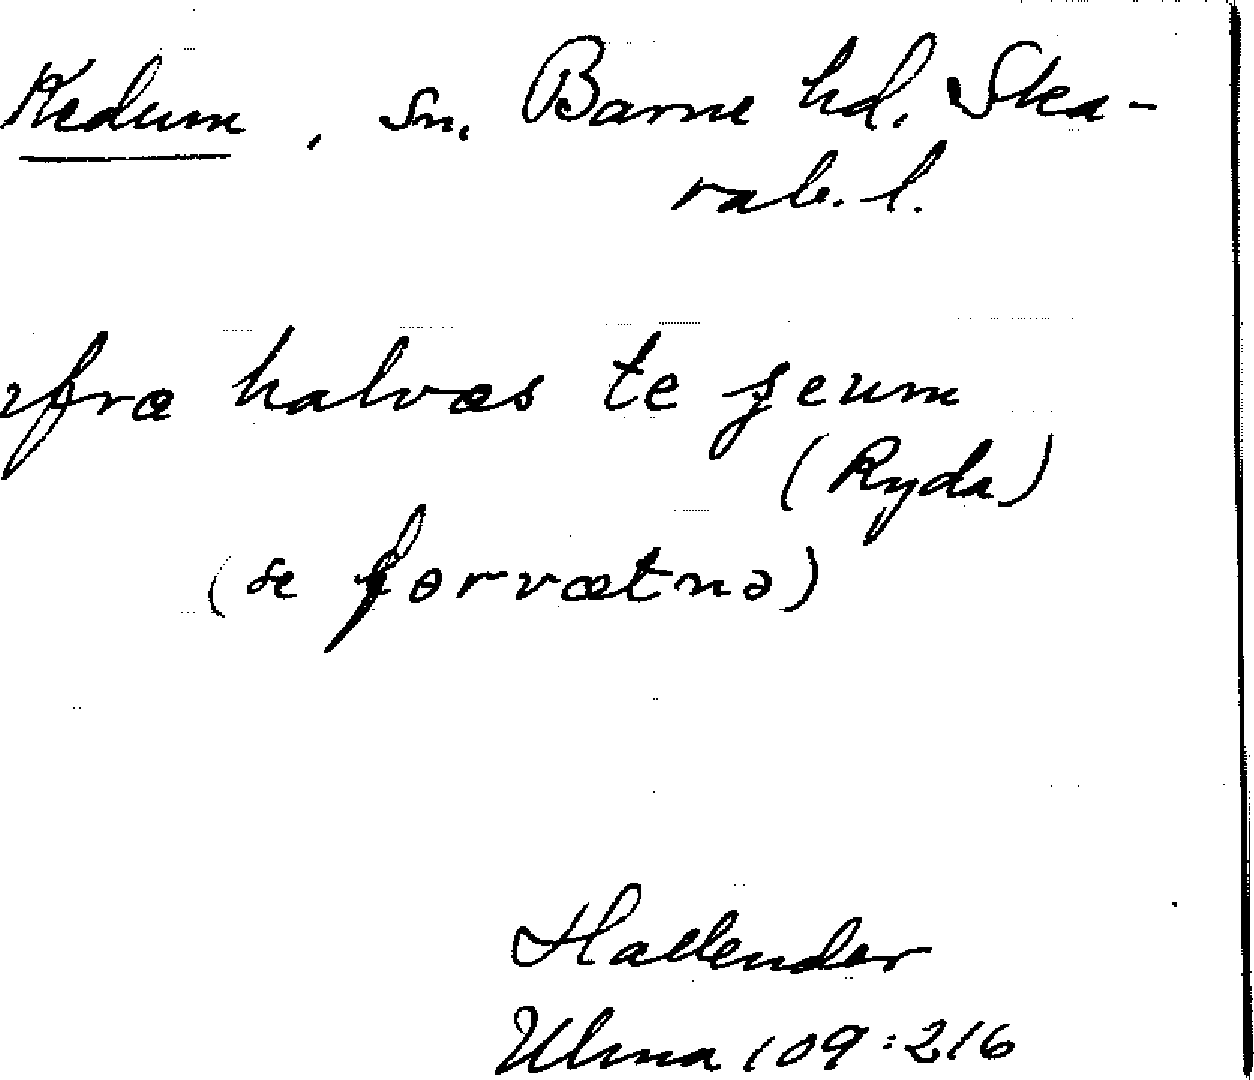 Kedum, sn. Barne hd. Ska-
rab. l.
fræ halvæs te jeum
(Ryda)
(se førvætnə)
Hallender
Ulma 109:216